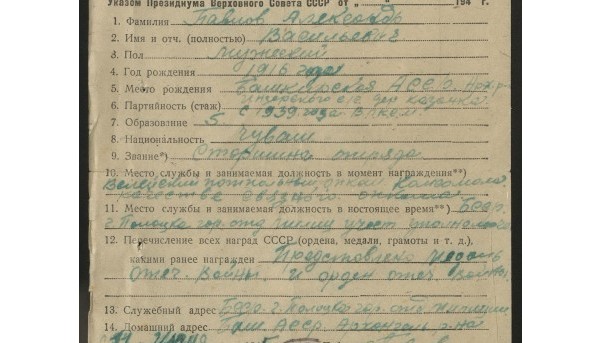 Указом Президиума Верховного Совета СССР от „ “ 194 г.
1. Фамилия Павлов Александр
2. Имя и отч. (полностью) Васильевич
3. Пол мужской
4. Год рождения 1916 года
5. Место рождения Башкирская АССР.
6. Партийность (стаж) с 1939 года ВЛКСМ
7. Образование 5
8. Национальность Чуваш
9. Звание*) Старшина отряда
10. Место службы и занимаемая должность в момент награждения**)
качестве связного
11. Место службы и занимаемая должность в настоящее время**) БССР
г Полоцк гор. отд милиц участ уполномоч
12. Перечисление всех наград СССР (ордена, медали, грамоты и т. д.),
какими ранее награжден Представлено медаль
Отеч. Войны. и орден отеч войны
13. Служебный адрес БССР г. Полоцк гор. отд милиции
14. Домашний адрес Баш АССР р-на